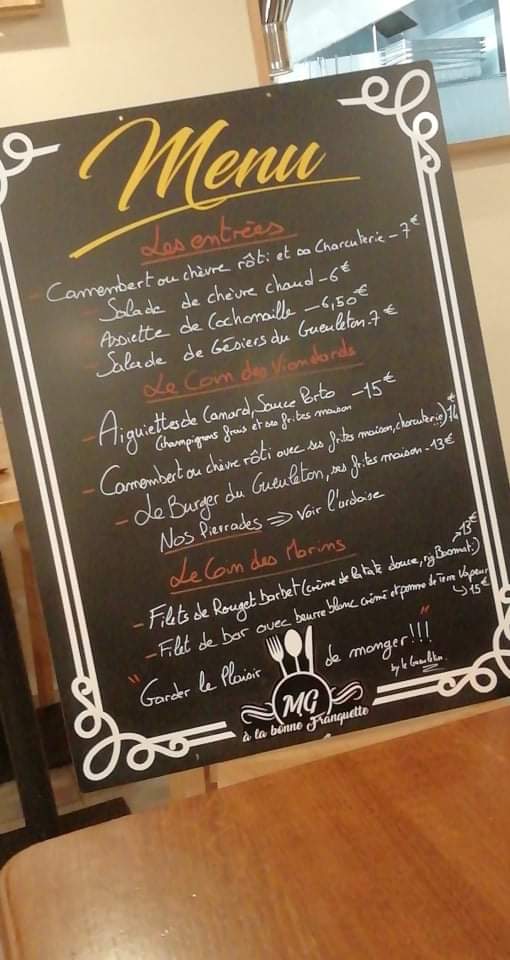 Menu
Les entrées
- Camembert ou chèvre rôti et sa Charcuterie - 7€
- Salade de chèvre chaud - 6€
- Assiette de Cochonaille - 6,50€
- Salade de Gésiers du Gueuleton. 7€
Le Coin des Viandards
- Aiguiettes de Canard, Sauce Porto - 15€
(champignons frais et ses frites maison
- Camembert ou chèvre rôti avec ses frites maison, charcuterie) 14€
- Le Burger du Gueuleton, ses frites maison - 13€
Nos Pierrades => Voir l'ardoise
Le Coin des Marins
- Filets de Rouget barbet (crème de patate douce, riz Basmati) -> 13€
- Filet de bar avec beurre blanc crémé et pomme de Terre Vapeur -> 15€
"Garder le Plaisir de manger!!!"
by le Gueuleton.
MG
à la bonne Franquette